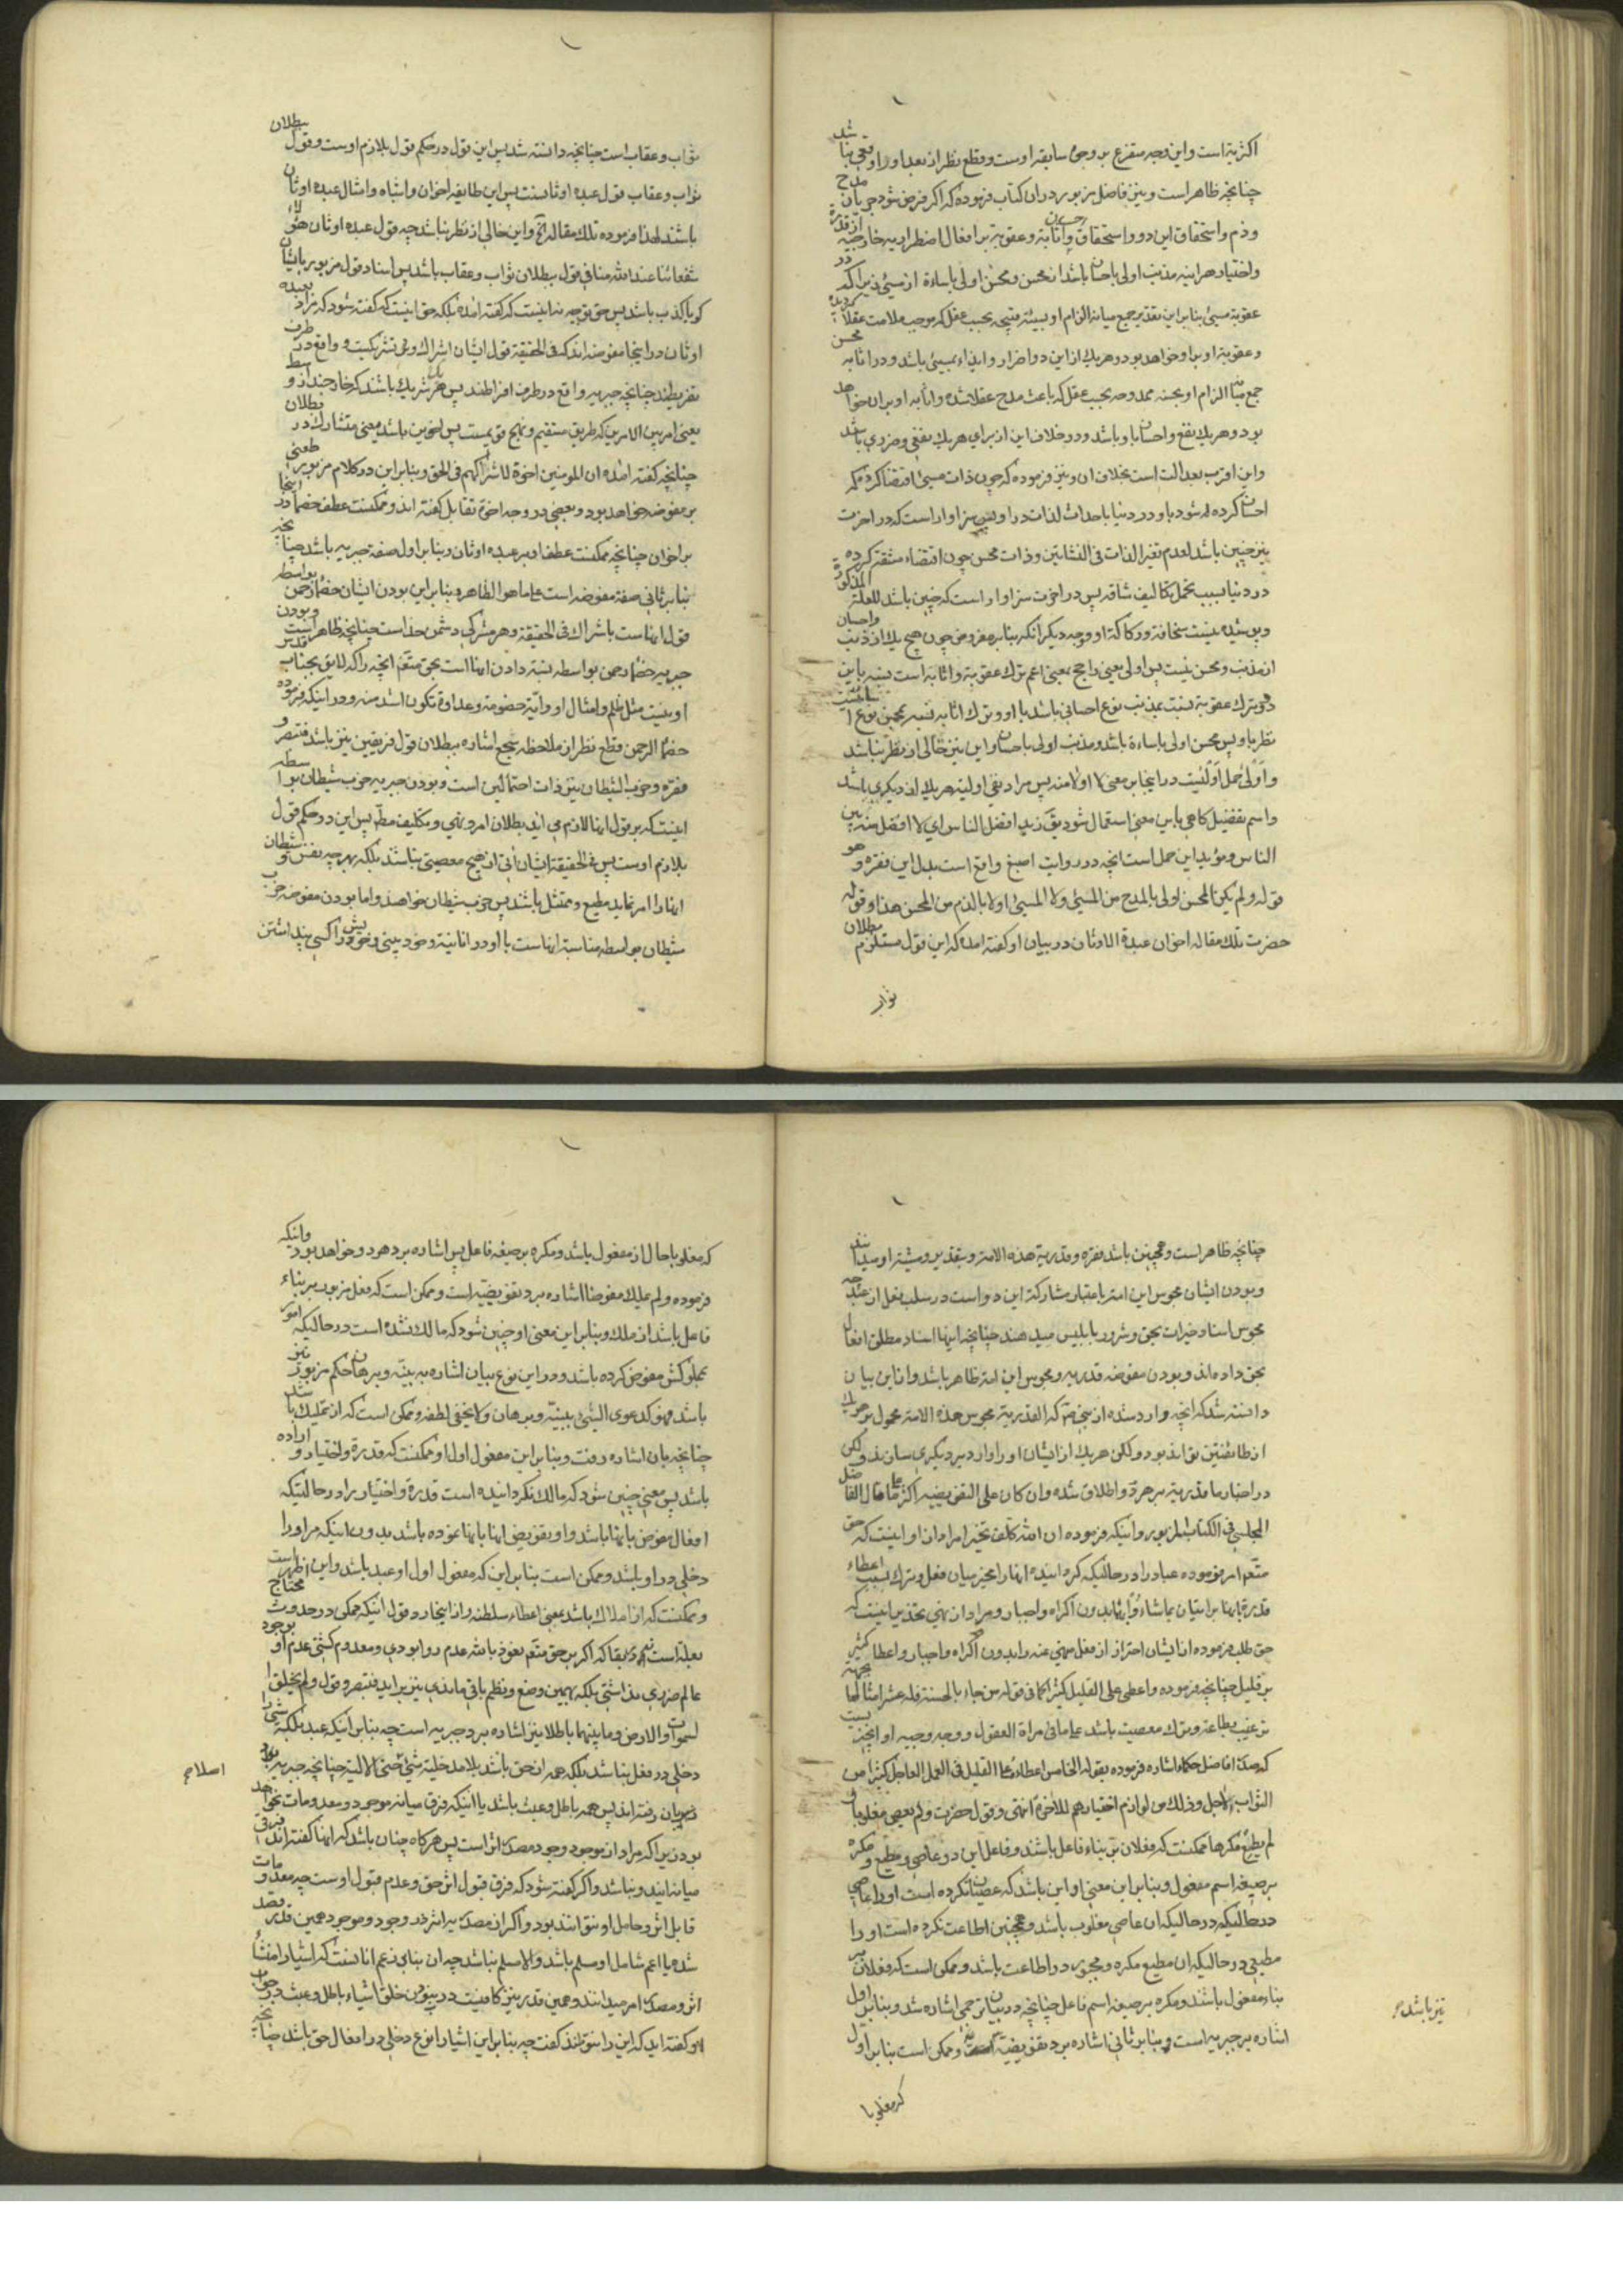 اکثریة است و این وجه متفرع بر وجوه سابقه اوست و قطع نظر از بعد او را وقعی نباشد
چنانچه ظاهر است و نیز فاضل مزبور در ان کتاب فرموده که اکر فرض شود جریان مدح
و ذم و استحقاق این دو و استحقاق و اثابة و عقوبة بر افعال اضطراریه خارجیه از قدرة
و اختیار هراینه مذنب اولی باحسان باشد از محسن و محسن اولی باساءة از مسیئ زیرا که در
عقوبة مسیئ بنابر این تقدیر جمع میانه الزام او بسیئه قبیحه بحسب عقل که موجب ملامت عقلا کردیده
و عقوبة او برا و خواهد بود و هر یک از این دو اضرار و ایذاء بمسیئ باشد و در اثابه محسن
جمع میانه الزام او بحسنه ممدوحه بحسب عقل که باعث مدح عقلا شده و اثابه او بران خواهد
بود و هر یک نفع و احسان باو باشد و در خلاف این از برای هر یک نفعی و ضرری باشد
و این اقرب بعدالت است بخلاف ان و نیز فرموده که چون ذات مسیئ اقتضا کرده که
احسان کرده شود باو در دنیا باحداث لذات در او پس سزاوار است که در اخرت
نیز چنین باشد لعدم تغیر الذات فی النشأتین و ذات محسن چون اقتضاء مشقة کرده
در دنیا بسبب تحمل تکالیف شاقه پس در اخرت سزاوار است که چنین باشد للعلة المذکورة
و پوشیده نیست سخافة و رکاکة او و وجه دیکر انکه بنابر مفروض چون هیچ یک از ذنب و احسان
از مذنب و محسن نیست پس اولی یعنی راجح بمعنی اعم ترک عقوبة و اثابه است نسبة باین
دو و ترک عقوبة نسبت بمذنب نوع احسانی باشد باو و ترک اثابه نسبة بمحسن نوع اساءتیست
نظر باو پس محسن اولی باساءة باشد و مذنب اولی باحسان و این نیز خالی از نظر نباشد
و اولی حمل اولئیت در اینجا بر معنی لا اولا منه پس مراد نفی اولیة هر یک از دیکری باشد
و اسم تفضیل کاهی باین معنی استعمال شود یق زید افضل الناس ای لا افضل منه بین
الناس و مؤید این حمل است انچه در روایت اصبغ واقع است بدل این فقره و هو
قوله و لم یکن المحسن اولی بالمدح من المسیئ و لا المسیئ اولا بالذم من المحسن هذا و قوله
حضرت تلک مقاله اخوان عبدة الاوثان در بیان او کفته امده که این قول مستلزم بطلان
ثواب
ثواب و عقاب است چنانچه دانسته شد پس این قول در حکم قول بلازم اوست و قول ببطلان
ثواب و عقاب قول عبده اوثانست پس این طایفه اخوان و اشباه و امثال عبده اوثان
باشند لهذا فرموده تلک مقاله آلخ و این خالی از نظر نباشد چه قول عبده اوثان هؤلاء
شفعائنا عند الله منافی قول ببطلان ثواب و عقاب باشد پس اسناد قول مزبور بایشان
کویا کذب باشد پس حق توجیه نه اینست که کفته امده بلکه حق اینست که کفته شود که مراد بعبده
اوثان در اینجا مفوضه اند که فی الحقیقة قول ایشان اشراک و نوعی تشریکیست و واقع در طرف
تفریطند چنانچه جبریه واقع در طرف افراطند پس هر یک شریک باشند که خارجند از وسط
یعنی امر بین الامرین که طریق مستقیم و نهج قویمست پس اخوین باشد بمعنی متشارک در بطلان
چنانچه کفته امده ان المؤمنین اخوة للاشتراکهم فی الحق و بنابر این در کلام مزبور طعنی
بر مفوضه خواهد بود و بعضی در وجه اخوة تقابل کفته اند و ممکنست عطف خصما در اینجا
بر اخوان چنانچه ممکنست عطف او بر عبده اوثان و بنابر اول صفة جبریه باشد چنانچه
بنابر ثانی صفة مفوضه است علی ما هو الظاهر و بنابر این بودن ایشان خصما رحمن بواسطه
قول ایشانست باشراک فی الحقیقة و هر مشرکی دشمن خداست چنانچه ظاهر است و بودن
جبریه خصما رحمن بواسطه نسبة دادن اینها است بحق متعم انچه را که لایق بجناب قدس
او نیست مثل ظلم و امثال او و ایّة خصومة و عداوة تکون اشد منه و در اینکه فرموده
خصماء الرحمن قطع نظر از ملاحظه بجمع اشاره ببطلان قول فریقین نیز باشد فتبصر و
فقره و حزب الشیطان نیز ذات احتمالین است و بودن جبریه حزب شیطان بواسطه
اینست که بر قول اینها لازم می اید بطلان امر و نهی و تکلیف مطلم پس این در حکم قول
بلازم اوست پس فی الحقیقة ایشان ابی از هیچ معصیتی نباشند بلکه بهر چه نفس و شیطان
اینها را امر نماید مطیع و ممتثل باشند پس حزب شیطان خواهند و اما بودن مفوضه حزب
شیطان بواسطه مناسبة اینهاست با او در انانیة و خودبینی و خود را کسی پنداشتن
چنانچه ظاهر است و همچنین باشد فقره و قدریة هذه الامة و بتقدیر و مشیة او میدانند
و بودن ایشان مجوس این امة باعتبار مشارکة این دو است در سلب فعل از عبد چه
مجوس اسناد خیرات بحق و شرور بابلیس میدهند چنانچه اینها اسناد مطلق افعال
بحق داده اند و بودن مفوضه قدریه و مجوس این امة ظاهر باشد و از این بیان
دانسته شد که انچه وارد شده از نبی ص که القدریة مجوس هذه الامة محمول بر هر یک
از طائفتین تواند بود و لکن هر یک از ایشان او را وارد بر دیکری سازند و لکن
در اخبار ما قدریة بر هر دو اطلاق شده و ان کان علی التفویضیه اکثر کما قال الفاضل
المجلسی فی الکتاب المزبور و اینکه فرموده ان الله کلف تخییرا مراد از او اینست که حق
متعم امر فرموده عباد را در حالتیکه کردانیده اینها را مخیر میان فعل و ترک بسبب اعطاء
قدرة باینها بر اتیان بما شاؤا بدون اکراه و اجبار و مراد از نهی تحذیر اینست که
حق طلب فرموده از ایشان احتراز از فعل منهی عنه را بدون اکراه و اجبار و اعطا کثیر
بر قلیل چنانچه فرموده و اعطی علی القلیل کثیرا کما فی قوله من جاء بالحسنة فله عشر امثالها بجهة
ترغیب بطاعة و ترک معصیت باشد علی ما فی مراة العقول و وجه وجیه او انچه ایست
که صدر افاضل حکماء اشاره فرموده بقوله الخامس اعطاءه علی القلیل فی العمل العاجل کثیرا من
الثواب الآجل و ذلک من لوازم اختیارهم للآخرة انتهی و قول حضرت و لم یعصی مغلوبا و
لم یطع مکرها ممکنست که فعلان بر بناء فاعل باشند و فاعل این دو عاصی و مطیع و مکره
بر صیغه اسم مفعول و بنابر این معنی او این باشد که عصیان نکرده است او را عاصی
در حالیکه در حالیکه ان عاصی مغلوب باشد و همچنین اطاعت نکرده است او را
مطیعی در حالیکه ان مطیع مکره و مجبور در اطاعت باشد و ممکن است که فعلان بر
بناء مفعول باشند و مکره بر صیغه اسم فاعل چنانچه در بیان ترجمی اشاره شد و بنابر اول
اشاره بر جبریه است و بنابر ثانی اشاره برد تفویضیة و ممکن است بنابر اول
نیز باشد
که مغلوبا
که مغلوبا حال از مفعول باشد و مکره بر صیغه فاعل پس اشاره برد هر دو خواهد بود و اینکه
فرموده و لم یملک مفوضا اشاره برد تفویضیه است و ممکن است که فعل مزبور بر بناء
فاعل باشد از ملک و بنابر این معنی او چنین شود که مالک نشده است در حالیکه امور
مملوکش مفوض کرده باشد و در این نوع بیان اشاره به بیّنه و برهان حکم مزبور نیز
باشد فهو کدعوی الشیئ ببیّنة و برهان و لا یخفی لطفه و ممکن است که از تملیک باشد
چنانچه بان اشاره رفت و بنابر این مفعول اول او ممکنست که قدرة و اختیار و اراده
باشد پس معنی چنین شود که مالک نکردانیده است قدرة و اختیار را در حالتیکه
افعال مفوض باینها باشد و او تفویض اینها باینها نموده باشد بدون اینکه مر او را
دخلی در او باشد و ممکن است بنابر این که مفعول اول او عبد باشد و این اظهر است
و ممکنست که از املاک باشد بمعنی اعطاء سلطنه و از اینجا رد قول اینکه ممکن در حدوث محتاج
بعلة است نه در بقا که اکر بر حق متعم نعوذ بالله عدم روا بودی و معدوم کشتی عدم او بوجود
عالم ضرری نداشتی بلکه بهمین وضع و نظم باقی ماندی نیز براید فتبصر و قول و لم یخلق
السموات و الارض و ما بینهما باطلا نیز اشاره برد جبریه است چه بنابر اینکه عبد بلکه شیئ را
دخلی در فعل نباشد بلکه همه از حق باشد بلا مدخلیة شیئ حتی الالیة چنانچه جبریه بود
نیز بان رفته اند پس همه باطل و عبث باشد یا اینکه فرق میانه موجود و معدومات نخواهد
بود زیرا که مراد از موجود وجود مصدر اثر است پس هر کاه چنان باشد که اینها کفته اند فرقی
میانه ایند و نباشد و اکر کفته شود که فرق قبول اثر حق و عدم قبول اوست چه معدومات
قابل اثر و حامل او نتوانند بود و اکر از مصدریة اثر در وجود و موجود همین قدر قصد
شده یا اعم شامل او مسلم باشد و الا مسلم نباشد چه ان بنابر زعم انانست که اشیاء را منشأ
اثر و مصدر امر میدانند و همین قدر نیز کافیست در نبودن خلق اشیاء باطل و عبث در جواب
او کفته اید که این را نتوانند کفت چه بنابر این اشیاء را نوع دخلی در افعال حق باشد چنانچه
اصلا م